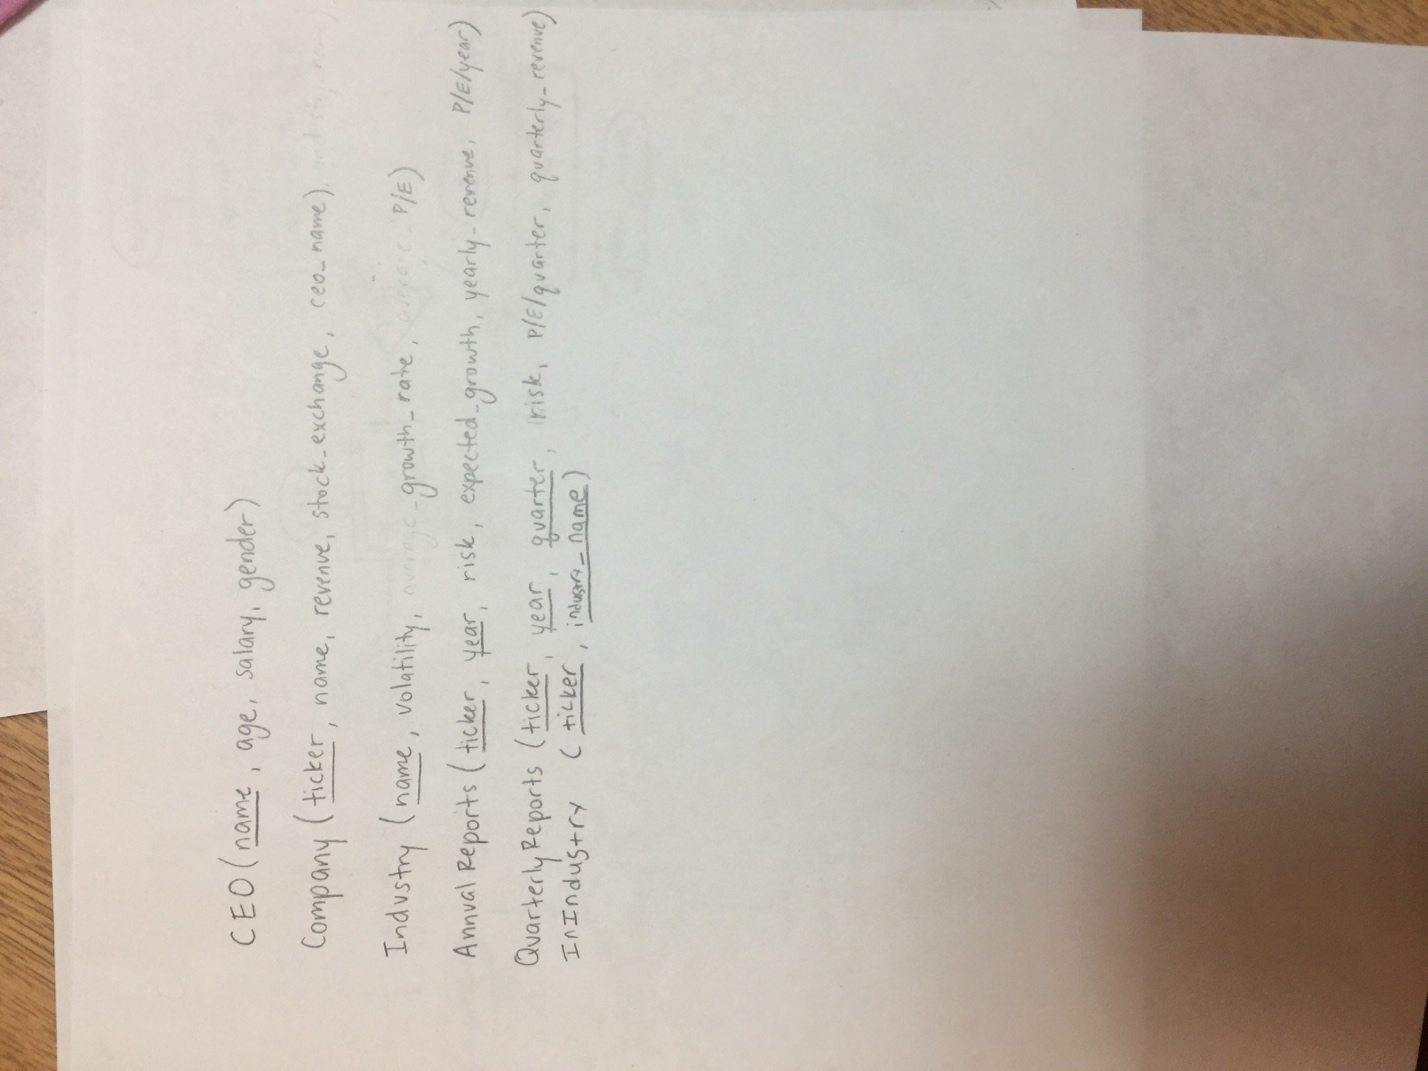 CEO (name, age, salary, gender)
Company (ticker, name, revenue, stock_exchange, ceo_name)
Industry (name, volatility, average_growth_rate, average_P/E)
Annual Reports (ticker, year, risk, expected_growth, yearly_revenue, P/E/year)
Quarterly Reports (ticker, year, quarter, risk, P/E/quarter, quarterly_revenue)
InIndustry (ticker, industry_name)